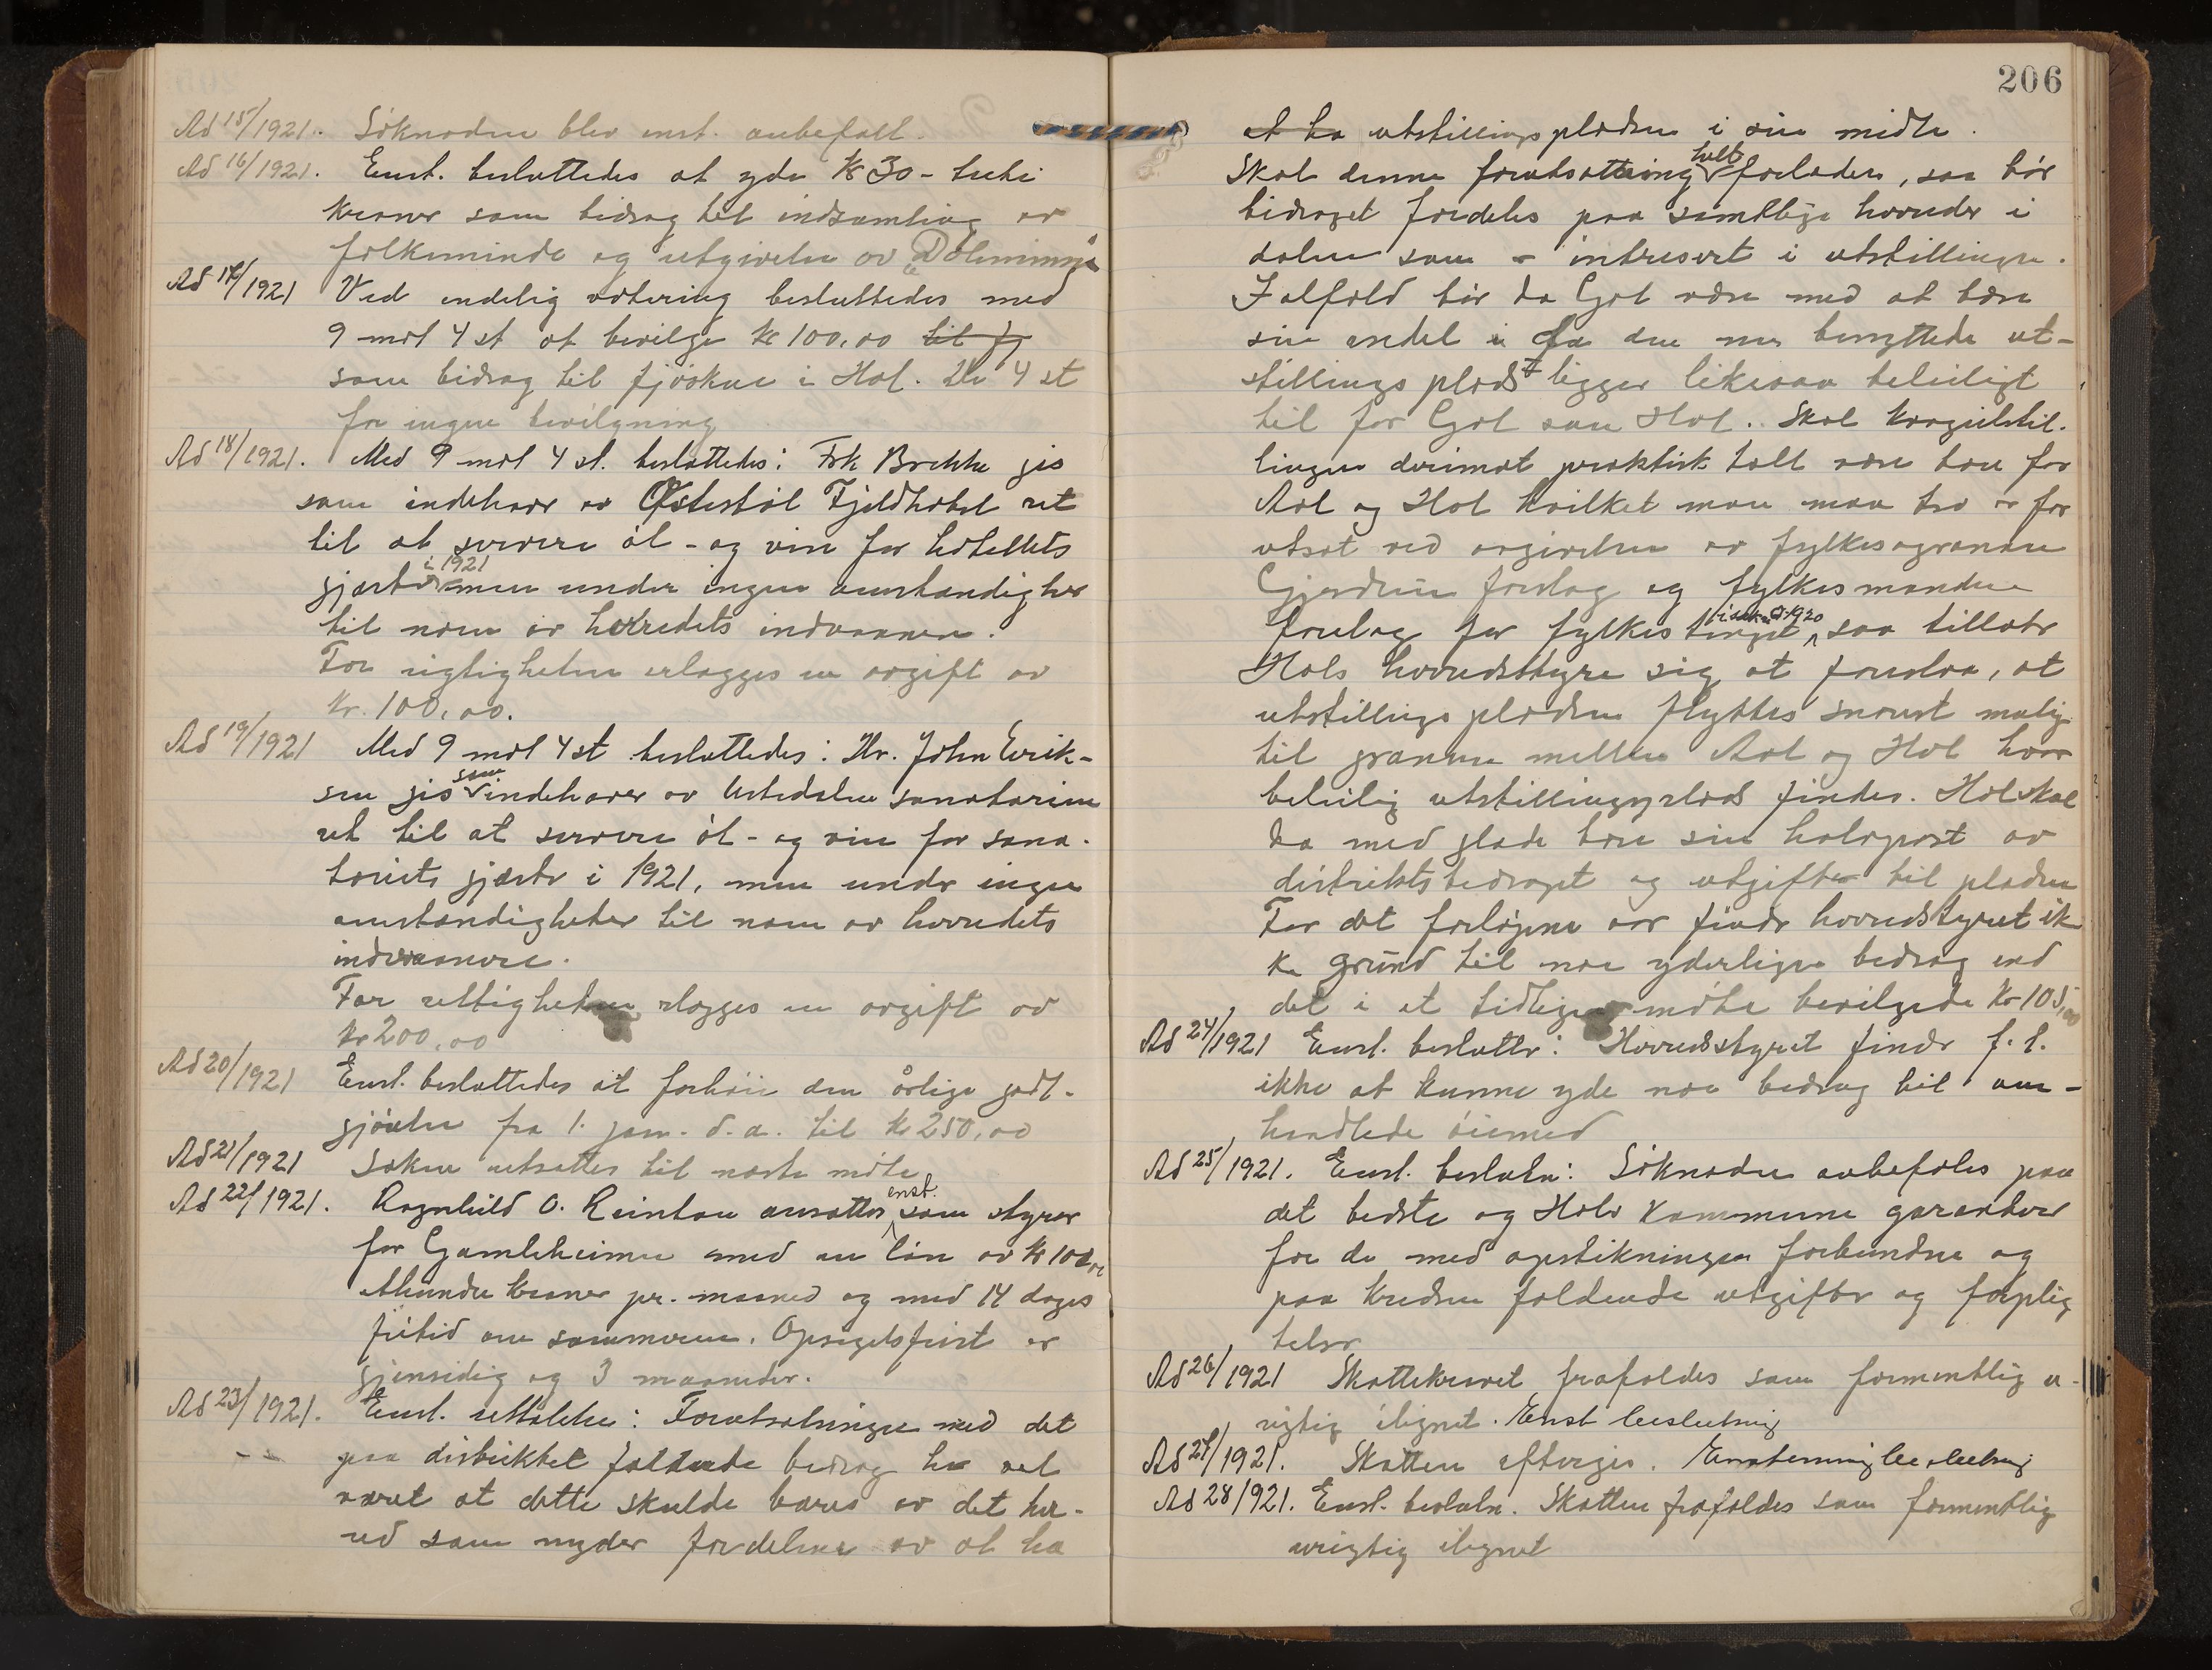 Ad 15/1921. Söknaden blev enst. anbefalt.
Ad 16/1921. Enst. besluttedes at yde Kr 30 - treti
kroner som bidrag til indsamling av
folkeminde og utgivelse av „Dölaminne“
Ad 17/1921 Ved endelig votering besluttedes med
9 mot 4 st at bevilge Kr 100,00 til fj
som bidrag til fjöskue i Hol. De 4 st
for ingen bevilgning
Ad 18/1921. Med 9 mot 4 st. besluttedes: Frk Brekke gis
som indehaver av Östestöl Fjeldhotel ret
til at servere öl - og vin for hotellets
i 1921
gjester men under ingen omstendigher
til noen av herredets indvaanere.
For rigtigheten erlægges en avgift av
kr. 100,00.
Ad 19/1921 Med 9 mot 4 st besluttedes: Hr. John Erik-
som
sen gis indehaver av Ustedalen sanatorium
ret til at servere öl - og vin for sana-
toriets gjester i 1921, men under ingen
omstændigheter til noen av herredets
indvaanere.
For rettigheten erlægges en avgift av
kr 200,00
Ad 20/1921 Enst. besluttedes at forhöie den årlige godt-
gjörelse fra 1. jan. d.a. til kr 250,00
Ad 21/1921 Saken utsættes til næste möte
enst.
Ad 22/1921. Ragnhild O. Reinton ansættes som styrer
for Gamleheimen med en lön av Kr 100,00
Ahundre kroner pr. maaned og med 14 dages
fritid om sommeren. Opsigelsfrist er
gjensidig og 3 maaneder.
Ad 23/1921. Enst. uttalelse: Forutsætningen med det
paa distriktet faldende bedrag har vel
været at dette skulde bæres av det her-
red som nyder fordelene av at ha
206
at ha utstillingspladsen i sin midte.
helt
Skal denne forutsætning forlades, saa bör
bidraget fordeles paa samtlige herreder i
dalen som er intresert i utstillingen.
I alfald bör da Gol være med at bære
sin andel i da den nu benyttede ut-
stillingsplads ligger likesaa beleiligt
til for Gol som Hol. Skal kvægutstil-
lingen derimot praktisk talt være bare for
Aal og Hol hvilket man maa tro er for
utsat ved avgivelsen av fylkesagronom
Gjerdrums forslag og fylkesmandens
1920
forslag for fylkestinget saa tillater
Hols herredsstyre sig at foreslaa, at
utstillingspladsen flyttes snarest mulig
til grænsen mellem Aal og Hol hvor
beleilig utstillingsplads findes. Hol skal
da med glæde bære sin halvpart av
distriktsbedraget og utgifter til pladsen
For det forlöpne aar finder herredsstyret ik
ke grund til noe yderligere bedrag end
det i et tidligere möte bevilgede Kr 105,00
Ad 24/1921 Enst. besluttr: Herredsstyret finder f. t.
ikke at kunne yde noe bedrag til om-
handlede öiemed
Ad 25/1921. Enst. besluttn: Söknaden anbefales paa
det bedste og Hols Kommune garanterer
for de med opstikningen forbundne og
paa kredsen faldende utgifter og forplig
telser
Ad 26/1921 Skattekravet frafaldes som formentlig u-
rigtig ilignet. Enst beslutning
Ad 27/1921. Skatten eftergies. Enstemmig beslutning
Ad 28/1921. Enst. beslutn. Skatten frafaldes som formentlig
urigtig ilignet